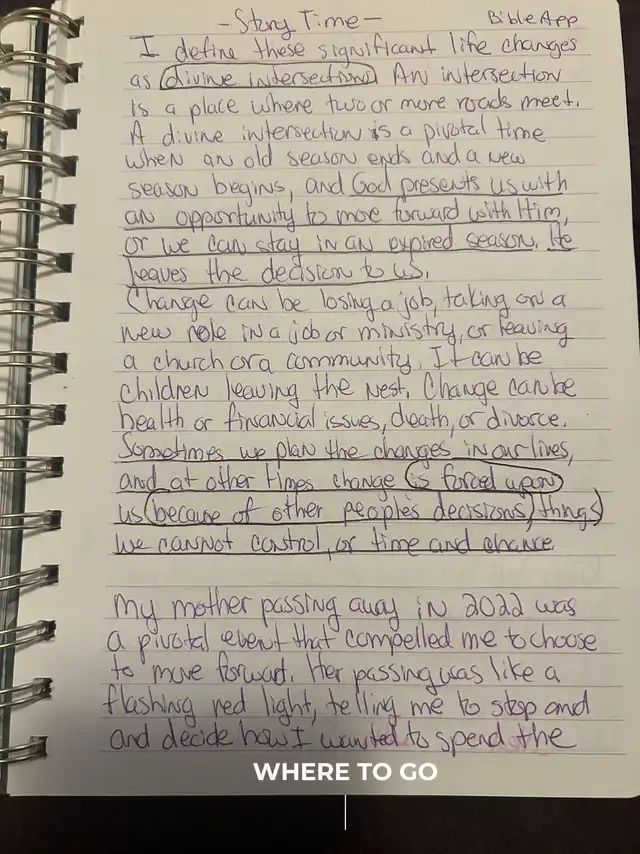 - Story Time -
Bible App
I define these significant life changes
as divine intersection. An intersection
is a place where two or more roads meet.
A divine intersection is a pivotal time
when an old season ends and a new
season begins, and God presents us with
an opportunity to move forward with Him,
or we can stay in an expired season. He
leaves the decision to us.
Change can be losing a job, taking on a
new role in a job or ministry, or leaving
a church or a community. It can be
children leaving the nest. Change can be
health or financial issues, death, or divorce.
Sometimes we plan the changes in our lives,
and at other times change is forced upon
us because of other people's decisions, things
we cannot control, or time and chance.
My mother passing away in 2022 was
a pivotal event that compelled me to choose
to move forward. Her passing was like a
flashing red light, telling me to stop and
and decide how I wanted to spend the
WHERE TO GO